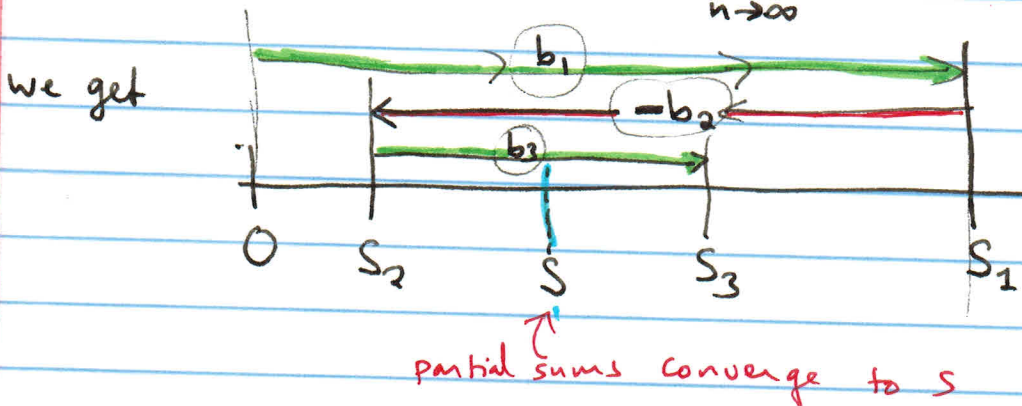 n→∞
b₁
we get
-b₂
b₃
0 S₂ S S₃ S₁
partial sums converge to S